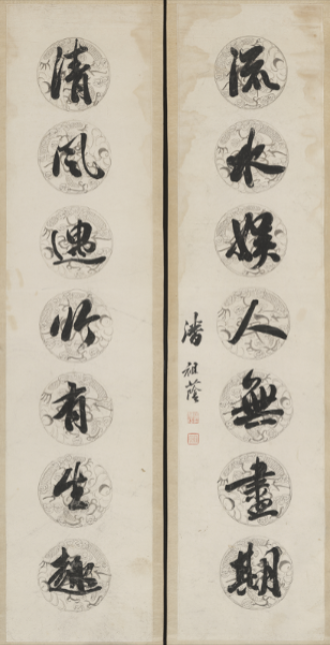 清風遇竹有生趣
流水娛人無盡期
潘祖蔭